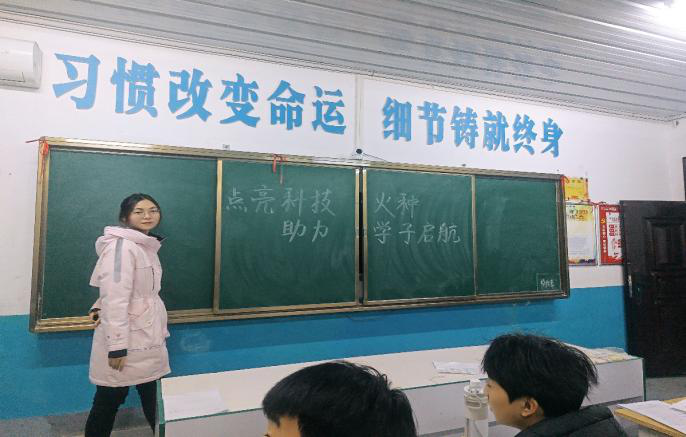 习惯改变命运 细节铸就终身
点亮科技 火种
助力 学子启航